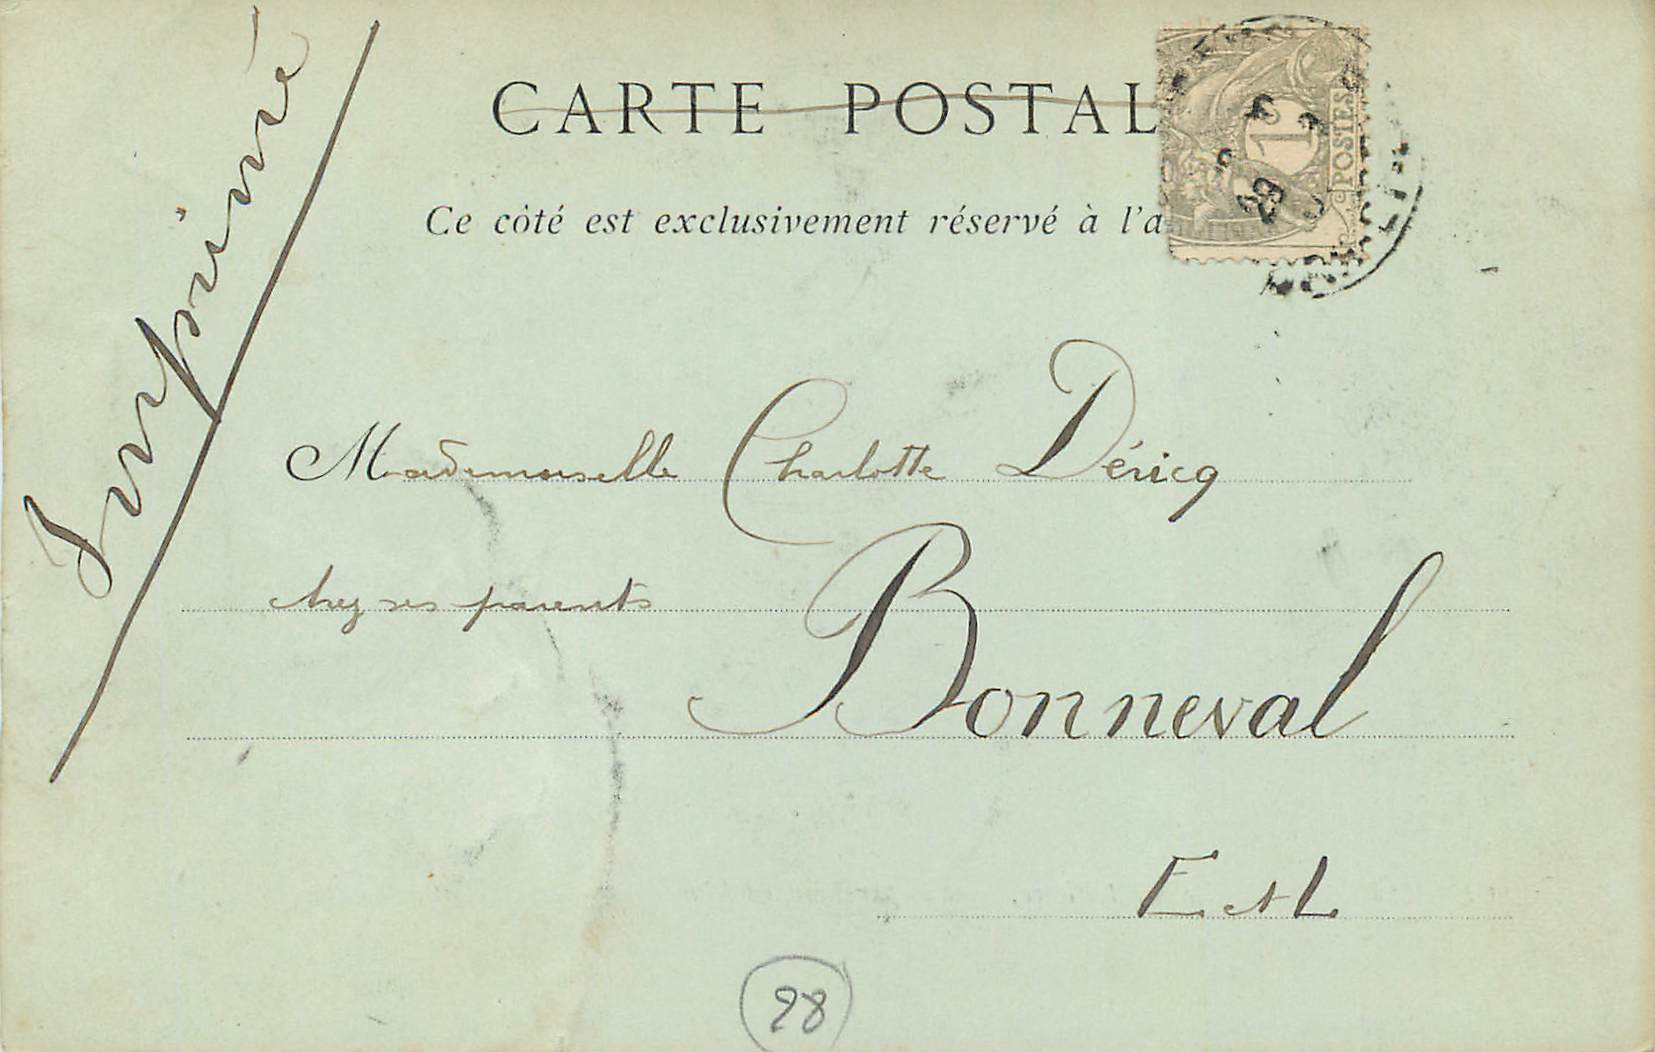 Imprimé
CARTE POSTAL
Ce côté est exclusivement réservé à l'a
1c
POSTES
29
Mademoiselle Charlotte Déricq
chez ses parents
Bonneval
E et L
28